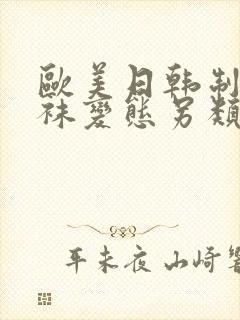 歐美日韩制
袜變態另類
平未夜 山崎響